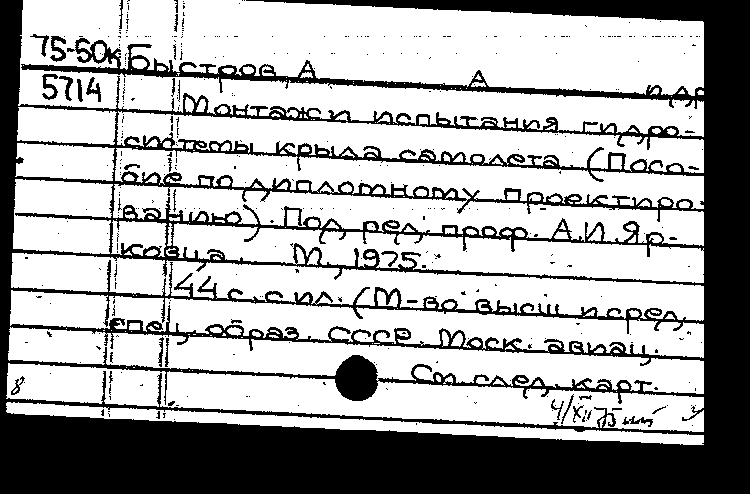 75-50к Быстров, А А и др
5714 Монтаж и испытания гидро-
системы крыла самолета. (Посо-
бие по дипломному проектиро-
ванию). Под ред. проф. А.И. Яр-
ковца. М., 1975.
44 с. с ил. (М-во высш и сред.
спец. образ. СССР. Моск. авиац.
См. след. карт.
8 4/XII 75